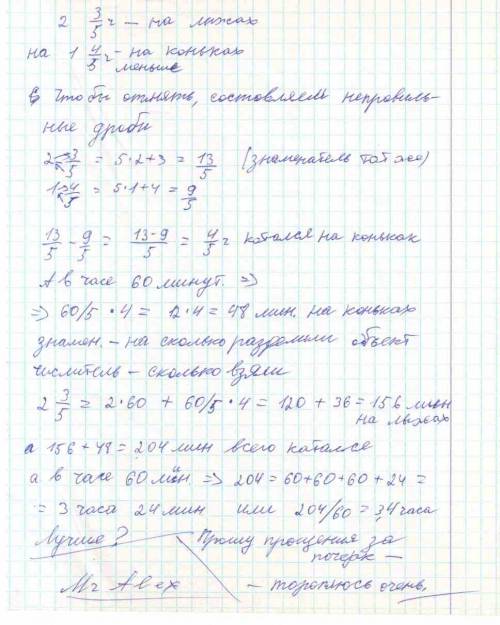 2 3/5 ч — на лыжах
на 1 4/5 ч — на коньках
меньше
Чтобы отнять, составляем неправиль-
ные дроби
2 3/5 = 5·2+3 = 13/5 (знаменатель тот же)
1 4/5 = 5·1+4 = 9/5
13/5 - 9/5 = 13-9/5 = 4/5 ч катался на коньках
А в часе 60 минут. =>
=> 60/5 · 4 = 12·4 = 48 мин. на коньках
знамен. — на сколько разделили объект
числитель — сколько взяли
2 3/5 = 2·60 + 60/5 · 4 = 120 + 36 = 156 мин
на лыжах
а 156 + 48 = 204 мин всего катался
а в часе 60 мин => 204 = 60+60+60+24 =
= 3 часа 24 мин или 204/60 = 3,4 часа
Лучшее? Прошу прощения за
почерк —
Mr Alex — тороплюсь очень.